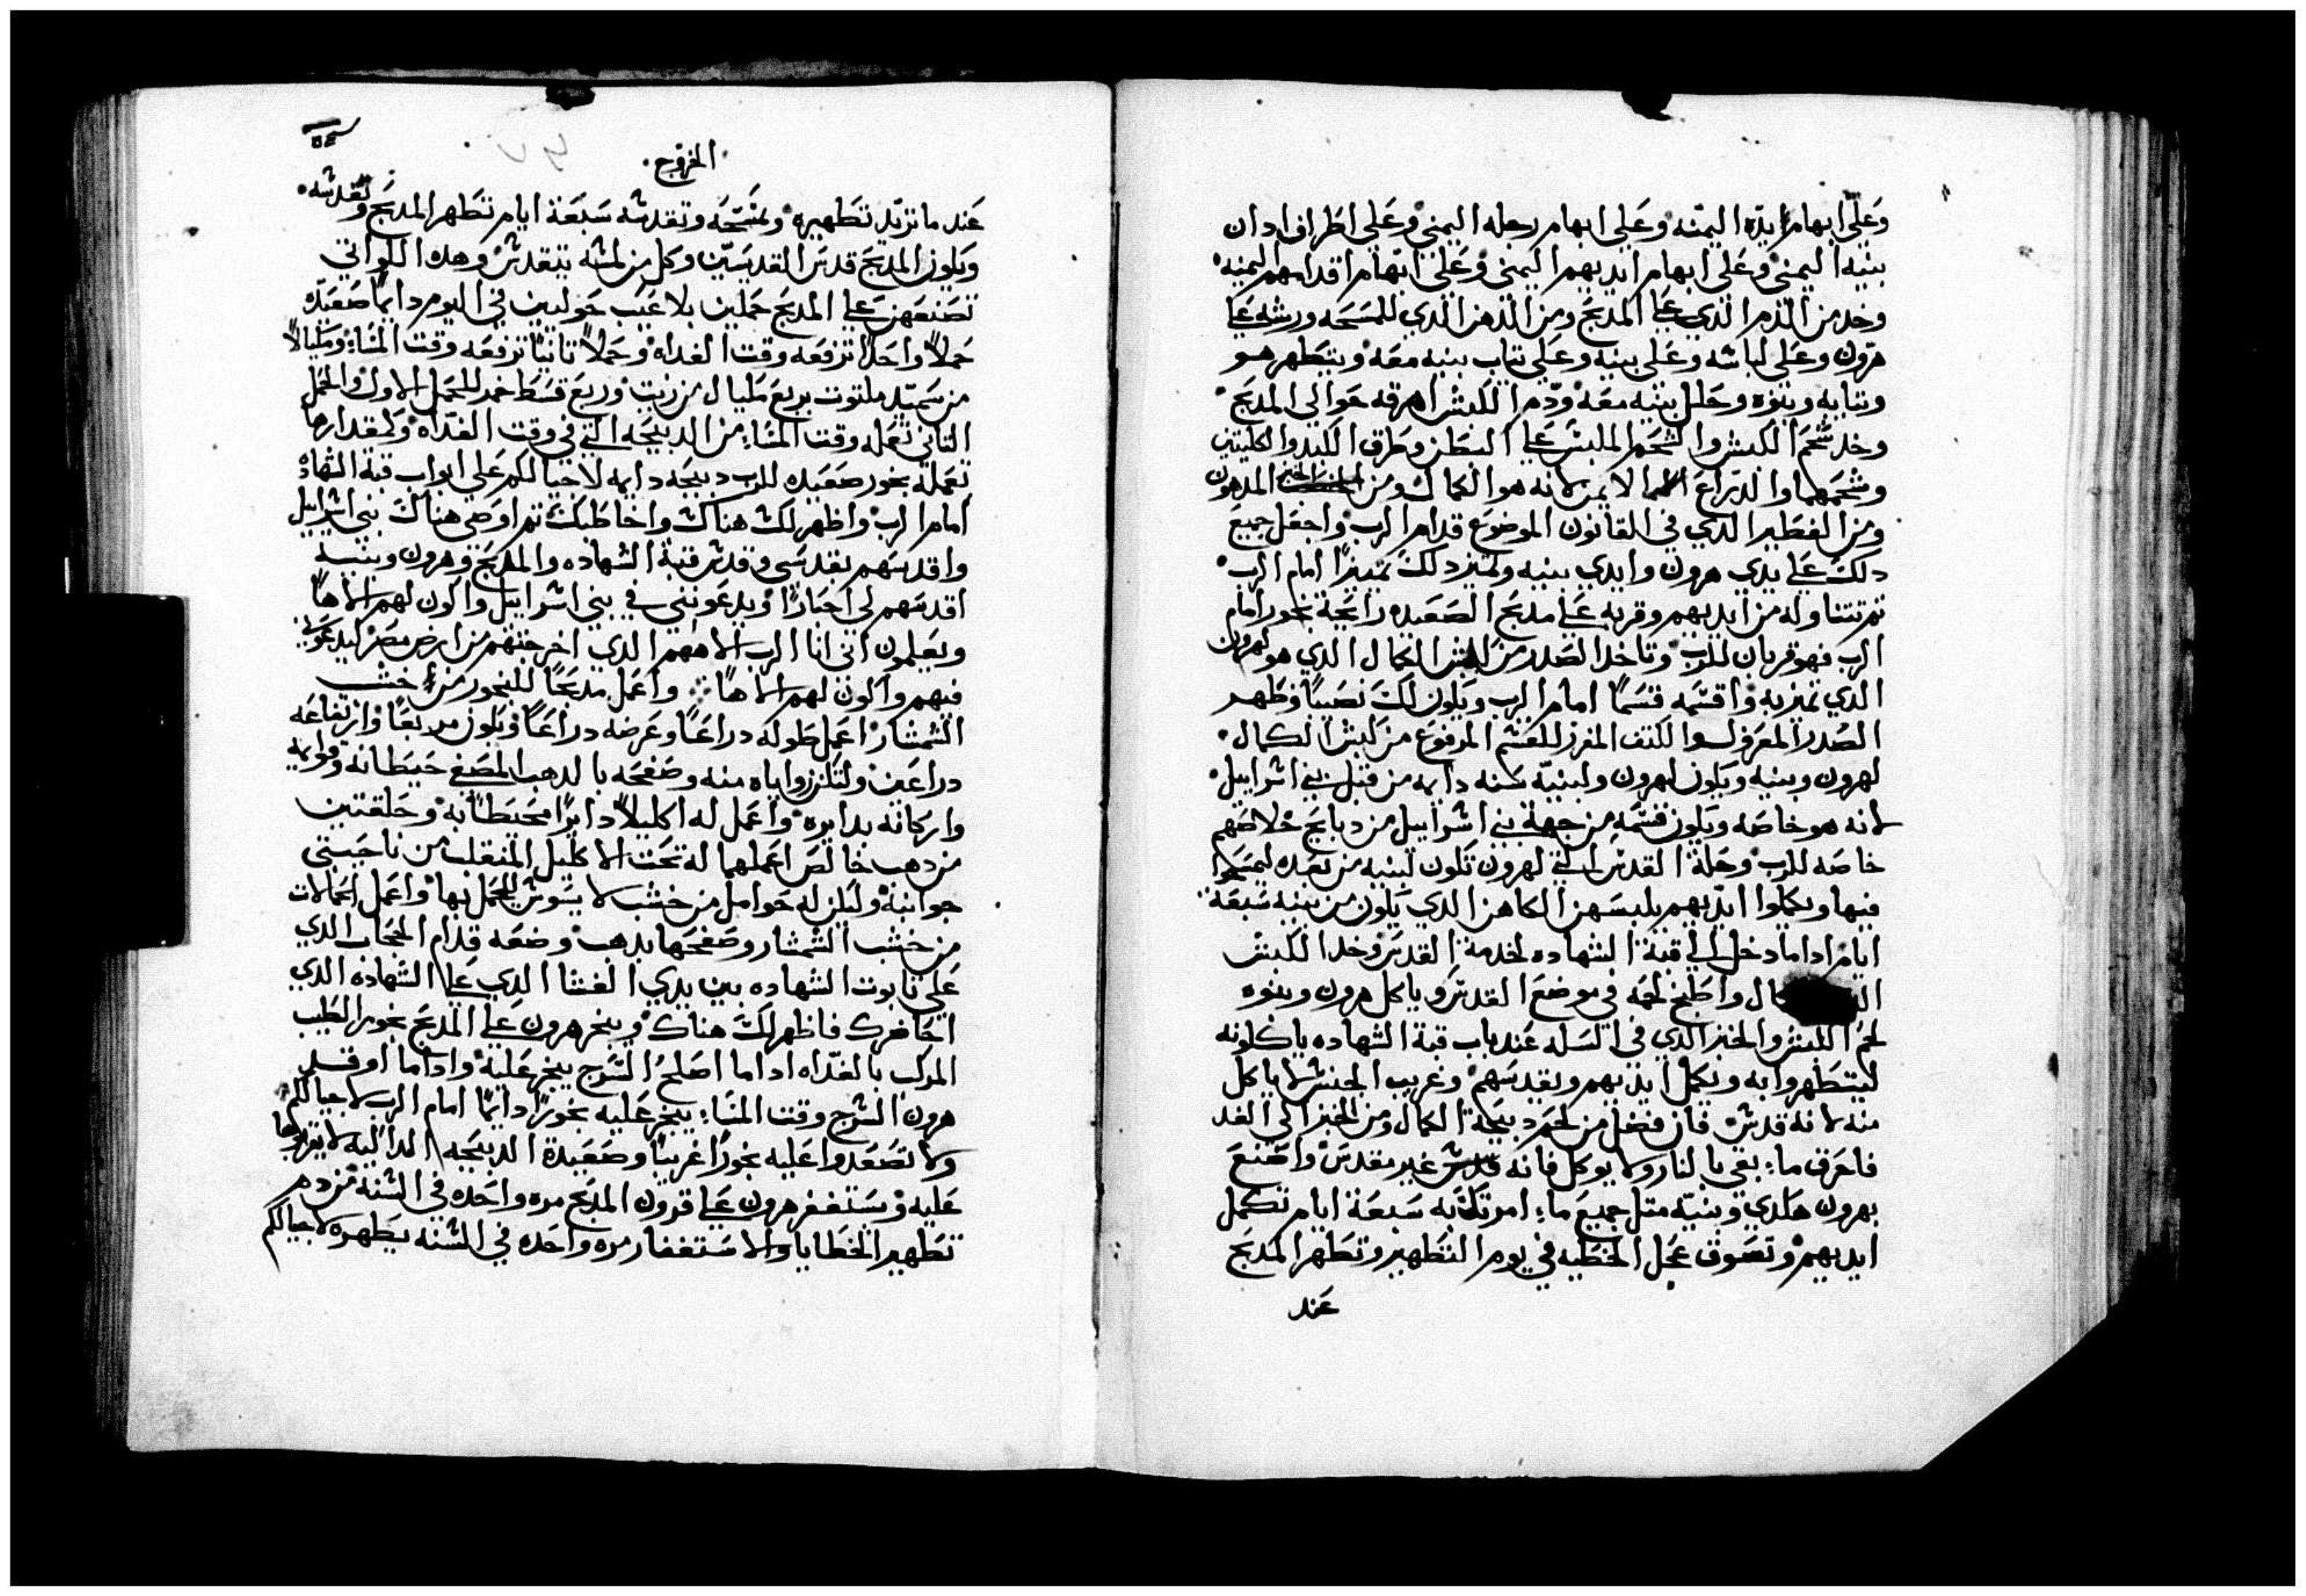 وعلى ابهام يده اليمنه وعلى ابهام رجله اليمني وعلى اطراف ادان
بنيه اليمني وعلى ابهام ايديهم اليمني وعلى ابهام اقدامهم اليمنه
وخد من الدم الدي علي المدبح ومن الدهن الدي للمسحه ورشه علي
هرون وعلى لباسه وعلى بنيه وعلى تياب بنيه معه ويتطهر هو
وتيابه وبنوه وحلل بنيه معه ودم الكبش اهرقه حوالي المدبح
وخد شحم الكبش والشحم الملبس علي البطن وطرق الكبد والكليتين
وشحمهما والدراع الايمن لانه هو الكمال ومن الخبز المدهون
ومن الفطير الدي في القانون الموضوع قدام الرب واجعل جميع
دلك علي يدي هرون وايدي بنيه وتميز دلك تمييزاً امام الرب
تم تتناوله من ايديهم وقربه علي مدبح الصعيده رايحة بخور امام
الرب فهو قربان للرب وتاخد الصدر من كبش الكمال الدي هو لهرون
الدي تميز به واقسمه قسماً امام الرب ويكون لك نصيباً وطهر
الصدر المعرف لسوا الكتف المفرز للقسم المرفوع من كبش الكمال
لهرون وبنيه ويكون لهرون ولبنيه سنه دايمه من قبل بني اشراييل
لانه هو خاصه ويكون قسمه من جهة بني اشراييل من دبايح خلاصهم
خاصه للرب وحلة القدس التي لهرون تكون لبنيه من بعده ليمسحوا
فيها ويكملوا ايديهم يلبسهن الكاهن الدي يكون من بنيه سبعة
ايام ادا ما دخل الي قبة الشهاده لخدمة القدس وخد الكبش
كال واطبخ لحمه في موضع القدس وياكل هرون وبنوه
لحم الكبش والخبز الدي في السله عند باب قبة الشهاده ياكلونه
ليتطهروا به وتكمل ايديهم وتقدسهم وغريب الجنس لا ياكل
منه لانه قدش فان فضل من لحم دبيحة الكمال ومن الخبز الي الغد
فاحرق ما بقي بالنار ولا يوكل فانه قدس غير مقدس واصنع
بهرون هكدي وبنيه متل جميع ما امرتك به سبعة ايام تكمل
ايديهم وتصوف عجل الخطيه في يوم التطهير وتطهر المدبح
عند
الخروج
عند ما تريد تطهيره وتمسحه وتقدسه سبعة ايام تطهر المدبح وتقدسه
ويكون المدبح قدس القديسين وكل من لمسه يتقدش وهده اللواتي
تصنعهن علي المدبح حملين بلا عيب حوليين في اليوم دايماً صعيده
حملاً واحداً ترفعه وقت الغداه وحملاً تانياً ترفعه وقت المسا ومكيالاً
من سميد ملتوت بربع مكيال من زيت وربع قسط خمر للحمل الاول والحمل
التاني تعمله وقت المسا من الدبيحه التي في وقت الغداه وكمقدارها
تعمله بخور صعيده للرب دبيحه دايمه لاجيالكم على ابواب قبة الشهاده
امام الرب واظهر لك هناك واخاطبك تم اوصي هناك بني اشراييل
واقدسهم بقدسي وقدش قبة الشهاده والمدبح وهرون وبنيه
اقدسهم لي احباراً ويدعونني في بني اشراييل واكون لهم الاهاً
ويعلمون اني انا الرب الاههم الدي اخرجتهم من ارض مصر ليدعوني
فيهم واكون لهم الاهاً واعمل مدبحاً للبخور من خشب
الشمشار اعمل طوله دراعاً وعرضه دراعاً ويكون مربعاً وارتفاعه
دراعين ولتكن زواياه منه وصفحه بالدهب المصفي حيطانه وقوايمه
واركانه بدايره واعمل له اكليلاً دايراً محيطاً به وحلقتين
من دهب خالص اعملهما له تحت الاكليل المنقلب من ناحيتي
جوانبه وليكن له حوامل من خشب لا يسوس ليحمل بها واعمل الحمالات
من خشب الشمشار وصفحها بدهب وضعه قدام الحجاب الدي
على تابوت الشهاده بين يدي الغشا الدي علي الشهاده الدي
احاضرك فاظهر لك هناك ويبخر هرون علي المدبح بخور الطيب
المركب بالغداه ادا ما اصلح السرج يبخر عليه وادا ما اوقد
هرون السرج وقت المسا يبخر عليه بخوراً دايماً امام الرب لاجيالكم
ولا تصعدوا عليه بخوراً غريباً وصعيدة الدبيحه المداليه لا تقربوها
عليه ويستغفر هرون علي قرون المدبح مره واحده في السنه من دم
تطهير الخطايا والاستغفار مره واحده في السنه يطهره لاجيالكم